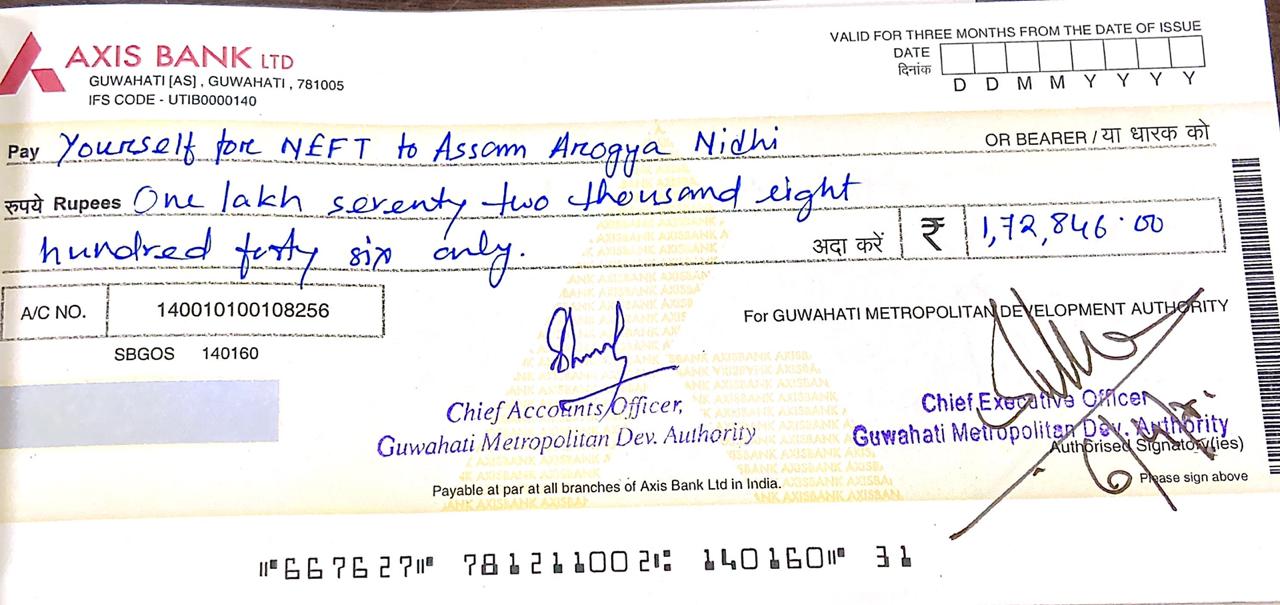 AXIS BANK LTD
GUWAHATI [AS] , GUWAHATI , 781005
IFS CODE - UTIB0000140
VALID FOR THREE MONTHS FROM THE DATE OF ISSUE
DATE
दिनांक
D D M M Y Y Y Y
Pay Yourself for NEFT to Assam Arogya Nidhi OR BEARER / या धारक को
रुपये Rupees One lakh seventy two thousand eight
hundred forty six only. अदा करें ₹ 1,72,846.00
A/C NO. 140010100108256
SBGOS 140160
For GUWAHATI METROPOLITAN DEVELOPMENT AUTHORITY
Chief Accounts Officer,
Guwahati Metropolitan Dev. Authority
Chief Executive Officer
Guwahati Metropolitan Dev. Authority
Authorised Signatory(ies)
Please sign above
Payable at par at all branches of Axis Bank Ltd in India.
⑈667627⑈ 781211002⑆ 140160⑈ 31